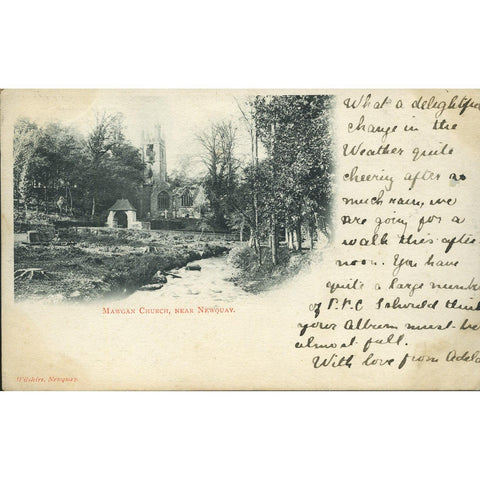 What a delightful
change in the
Weather quite
cheering after so
much rain, we
are going for a
walk this after-
noon. You have
quite a large number
of P.P.C I should think
your Album must be
almost full.
With love from Adela
Mawgan Church, near Newquay.
Wilshire, Newquay.